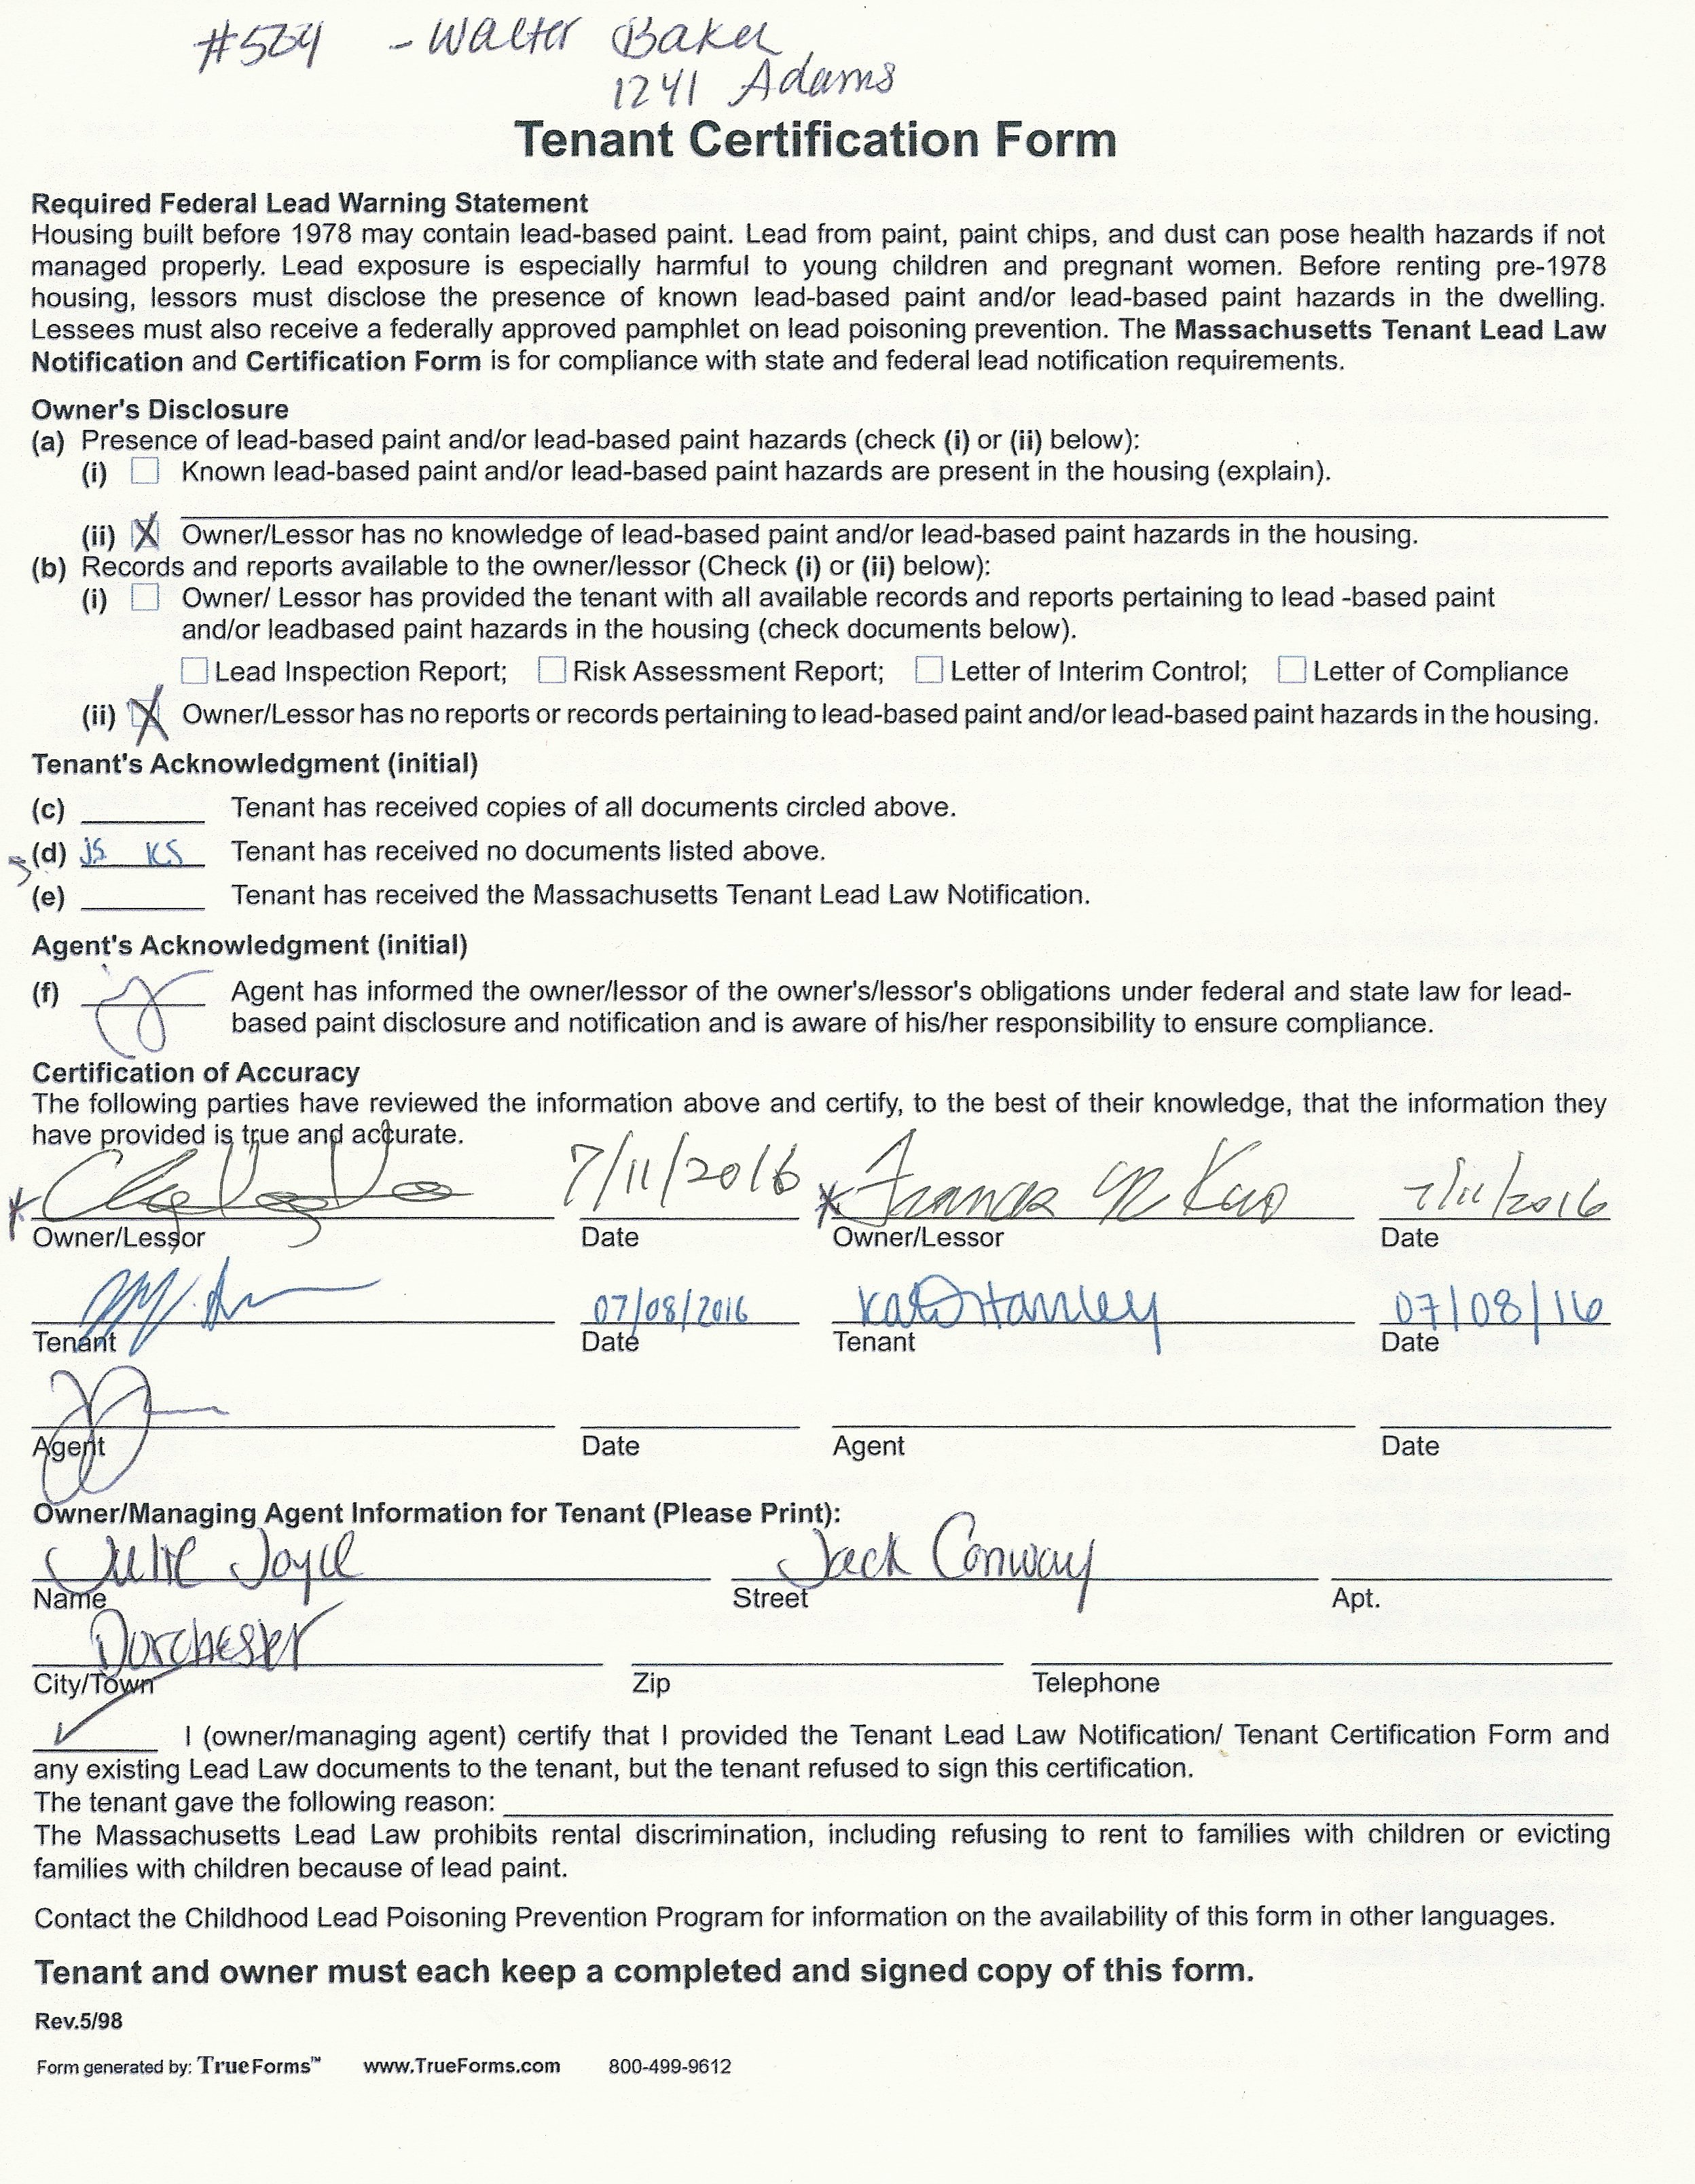 #504 - Walter Baker
1241 Adams
Tenant Certification Form
Required Federal Lead Warning Statement
Housing built before 1978 may contain lead-based paint. Lead from paint, paint chips, and dust can pose health hazards if not
managed properly. Lead exposure is especially harmful to young children and pregnant women. Before renting pre-1978
housing, lessors must disclose the presence of known lead-based paint and/or lead-based paint hazards in the dwelling.
Lessees must also receive a federally approved pamphlet on lead poisoning prevention. The Massachusetts Tenant Lead Law
Notification and Certification Form is for compliance with state and federal lead notification requirements.
Owner's Disclosure
(a) Presence of lead-based paint and/or lead-based paint hazards (check (i) or (ii) below):
(i) Known lead-based paint and/or lead-based paint hazards are present in the housing (explain).
(ii) X Owner/Lessor has no knowledge of lead-based paint and/or lead-based paint hazards in the housing.
(b) Records and reports available to the owner/lessor (Check (i) or (ii) below):
(i) Owner/ Lessor has provided the tenant with all available records and reports pertaining to lead -based paint
and/or leadbased paint hazards in the housing (check documents below).
Lead Inspection Report; Risk Assessment Report; Letter of Interim Control; Letter of Compliance
(ii) X Owner/Lessor has no reports or records pertaining to lead-based paint and/or lead-based paint hazards in the housing.
Tenant's Acknowledgment (initial)
(c) Tenant has received copies of all documents circled above.
(d) JS KS Tenant has received no documents listed above.
(e) Tenant has received the Massachusetts Tenant Lead Law Notification.
Agent's Acknowledgment (initial)
(f) Agent has informed the owner/lessor of the owner's/lessor's obligations under federal and state law for lead-
based paint disclosure and notification and is aware of his/her responsibility to ensure compliance.
Certification of Accuracy
The following parties have reviewed the information above and certify, to the best of their knowledge, that the information they
have provided is true and accurate.
7/11/2016 Kuo 7/11/2016
Owner/Lessor Date Owner/Lessor Date
07/08/2016 07/08/16
Tenant Date Tenant Date
Agent Date Agent Date
Owner/Managing Agent Information for Tenant (Please Print):
Julie Joyce Jack Conway
Name Street Apt.
Dorchester
City/Town Zip Telephone
I (owner/managing agent) certify that I provided the Tenant Lead Law Notification/ Tenant Certification Form and
any existing Lead Law documents to the tenant, but the tenant refused to sign this certification.
The tenant gave the following reason:
The Massachusetts Lead Law prohibits rental discrimination, including refusing to rent to families with children or evicting
families with children because of lead paint.
Contact the Childhood Lead Poisoning Prevention Program for information on the availability of this form in other languages.
Tenant and owner must each keep a completed and signed copy of this form.
Rev.5/98
Form generated by: TrueForms™ www.TrueForms.com 800-499-9612